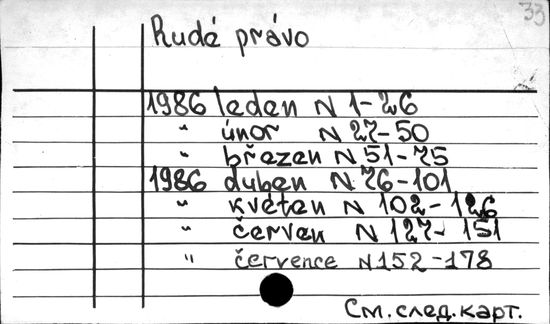 33
Rudé právo
1986 leden N 1-26
" únor N 27-50
" březen N 51-75
1986 duben N 76-101
" květen N 102-126
" červen N 127-151
" července N 152-178
См. след. карт.